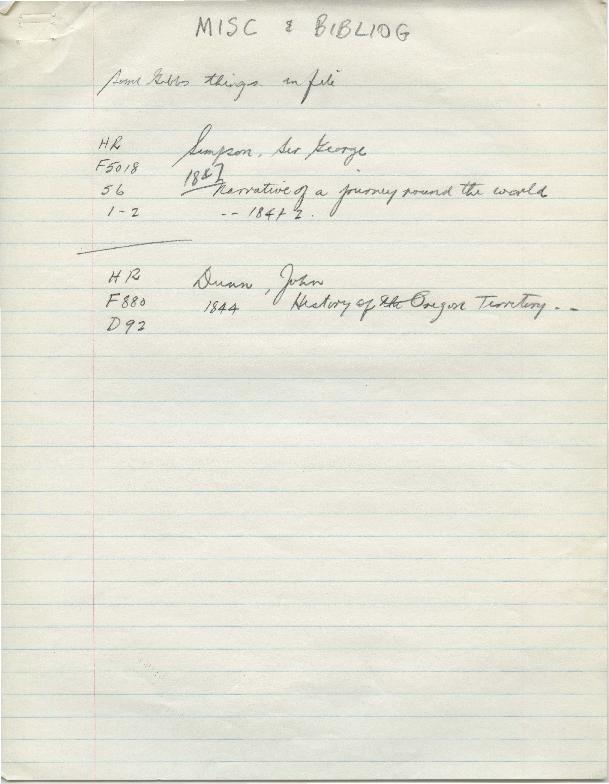 MISC & BIBLIOG
Some Gibbs things in file
HR Simpson, Sir George
F5018 1847
56 Narrative of a journey round the world
1-2 -- 1841 2.
HR Dunn, John
F880 1844 History of the Oregon Territory --
D92